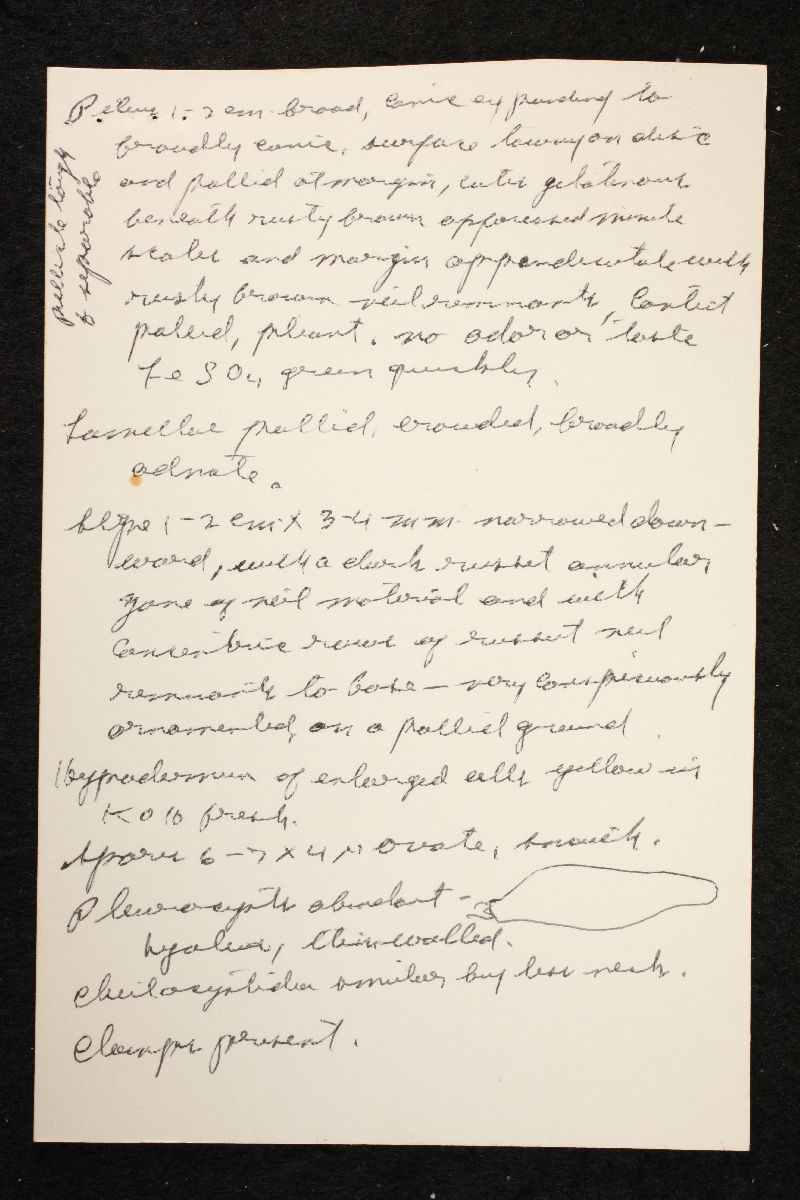 Pileus 1-2 cm broad, conic expanding to
broadly conic, surface tawny on disc
and pallid at margin, cutis gelatinous
beneath rusty brown appressed minute
scales and margin appendiculate with
rusty brown veil remnants, Context
pallid, pliant, no odor or taste
FeSO4 green quickly.
pellicle tough
& separable
Lamellae pallid, crowded, broadly
adnate.
Stipe 1-2 cm X 3-4 mm narrowed down-
ward, with a dark russet annular
zone of veil material and with
Concentric rows of russet veil
remnants to base — very conspicuously
ornamented, on a pallid ground.
Hypodermium of enlarged cells yellow in
KOH fresh.
Spores 6-7 X 4 µ ovate, smooth.
Pleurocysts abundant -
hyaline, thin walled.
Cheilocystidia similar but less neck.
Clamps present.